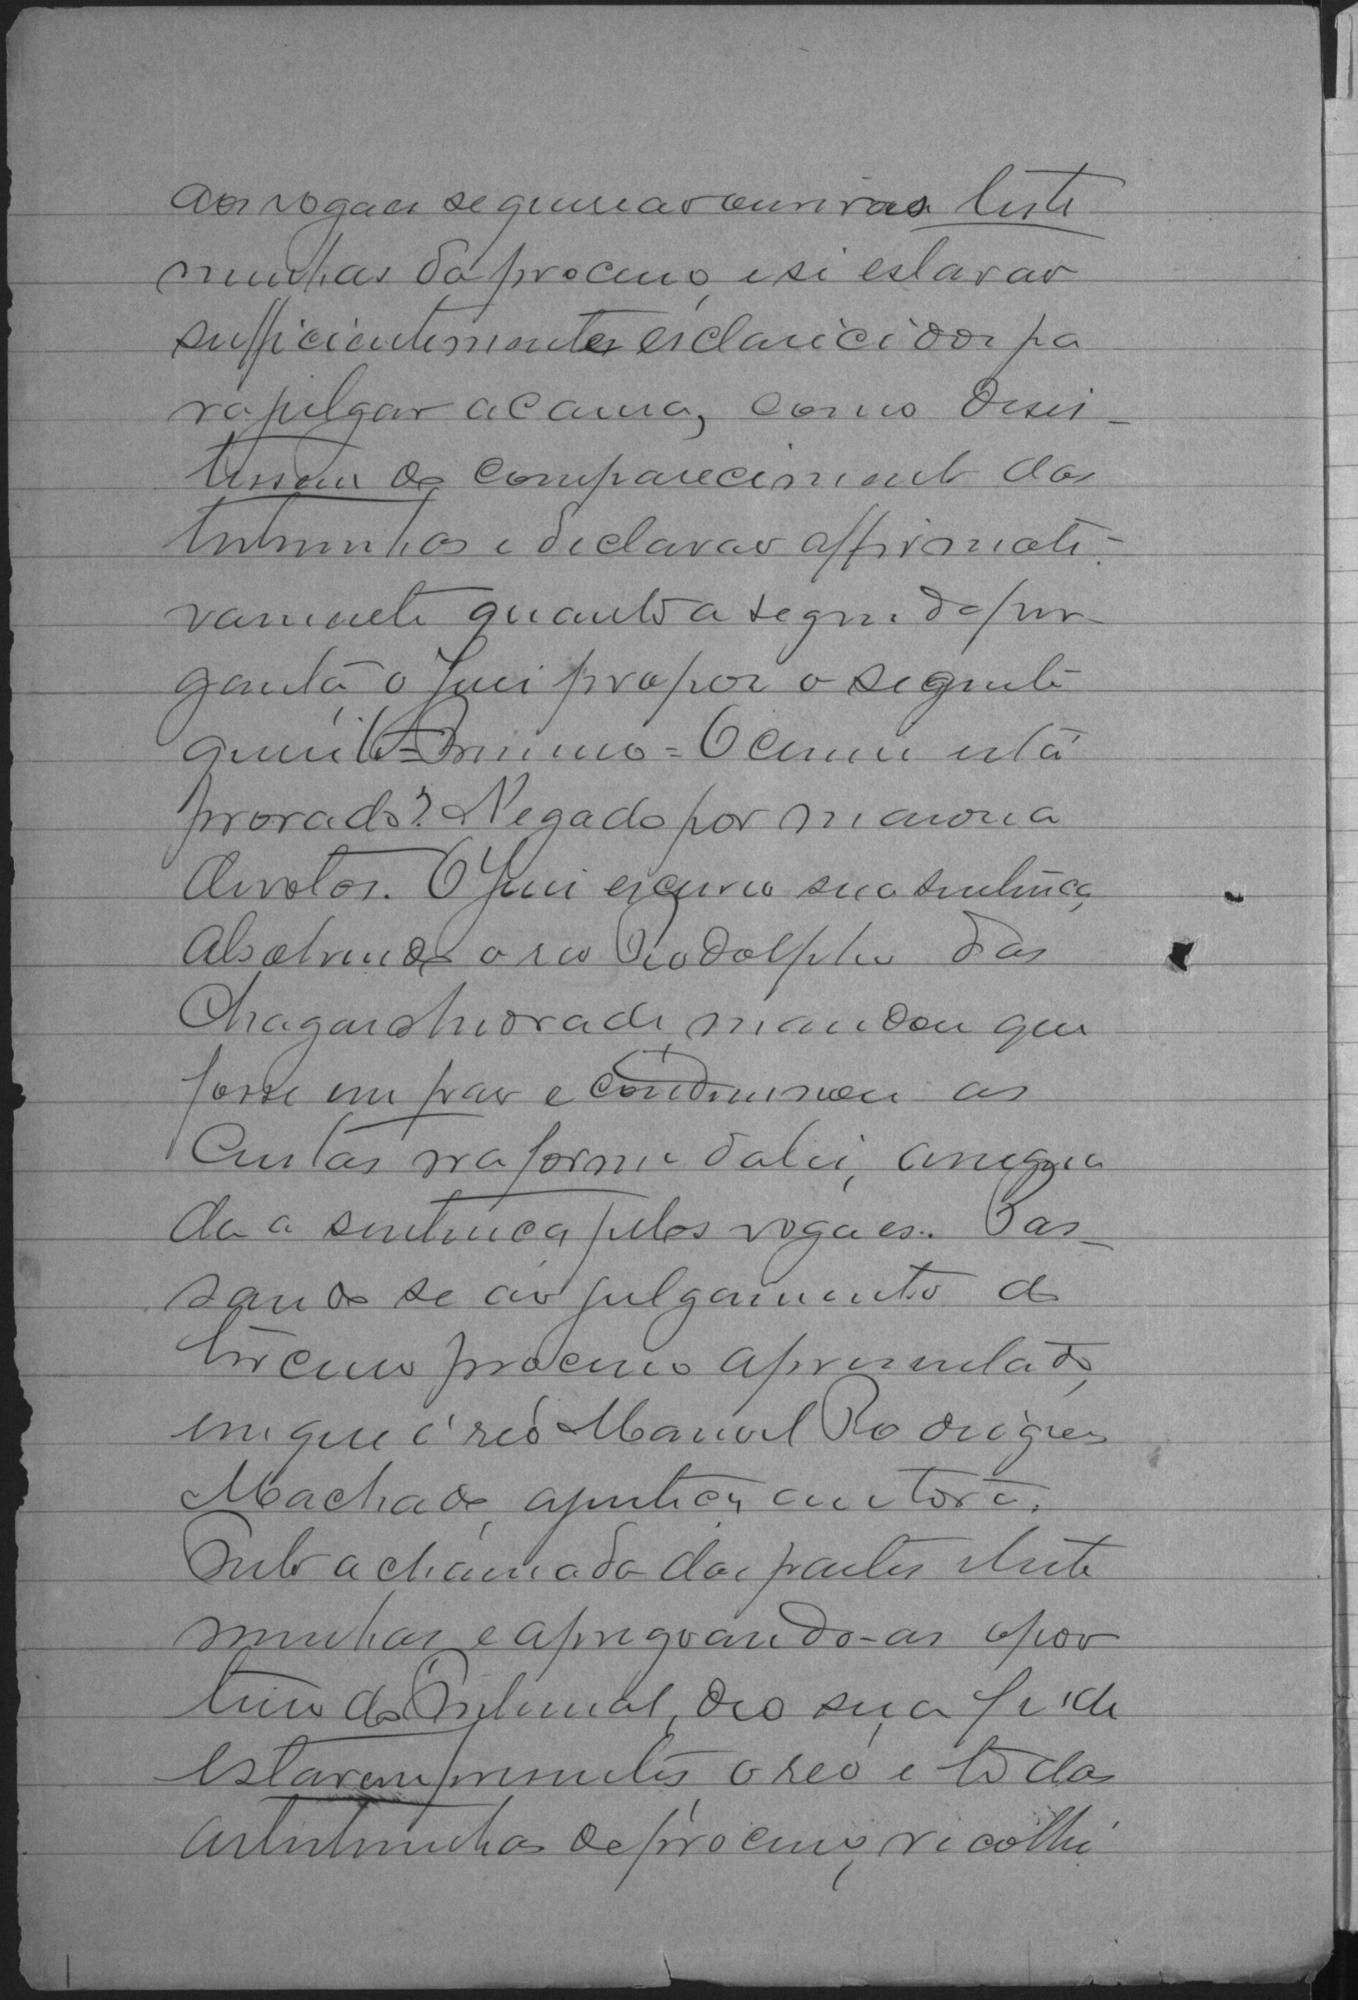 aos vogaes se queriao ouvir as teste
munhas do processo, e si estavao
sufficientemente esclarecidos pa
ra julgar a causa, como desis-
tissem do comparecimento das
testemunhas e declarao affirmati-
vamente quanto a segunda per-
gunta, o Juiz propoz o seguinte
quesito = Primeiro = O crime está
provado? Negado por maioria
de votos. O Juiz escreveo sua sentença,
absolvendo o reo Rodolpho das
Chagas Andrade, mandou que
fosse em paz e condemnou as
Custas na forma da lei, assigna
da a sentença pelos vogaes. Pas-
sando se ao julgamento do
terceiro processo apresentado,
em que é réo Manoel Rodrigues
Machado, a justiça autora.
Feito a chamada das partes e teste
munhas e apregoando-as o por
teiro do Tribunal, deo sua fé de
estarem presentes o réo e todas
as testemunhas do processo, recolhi